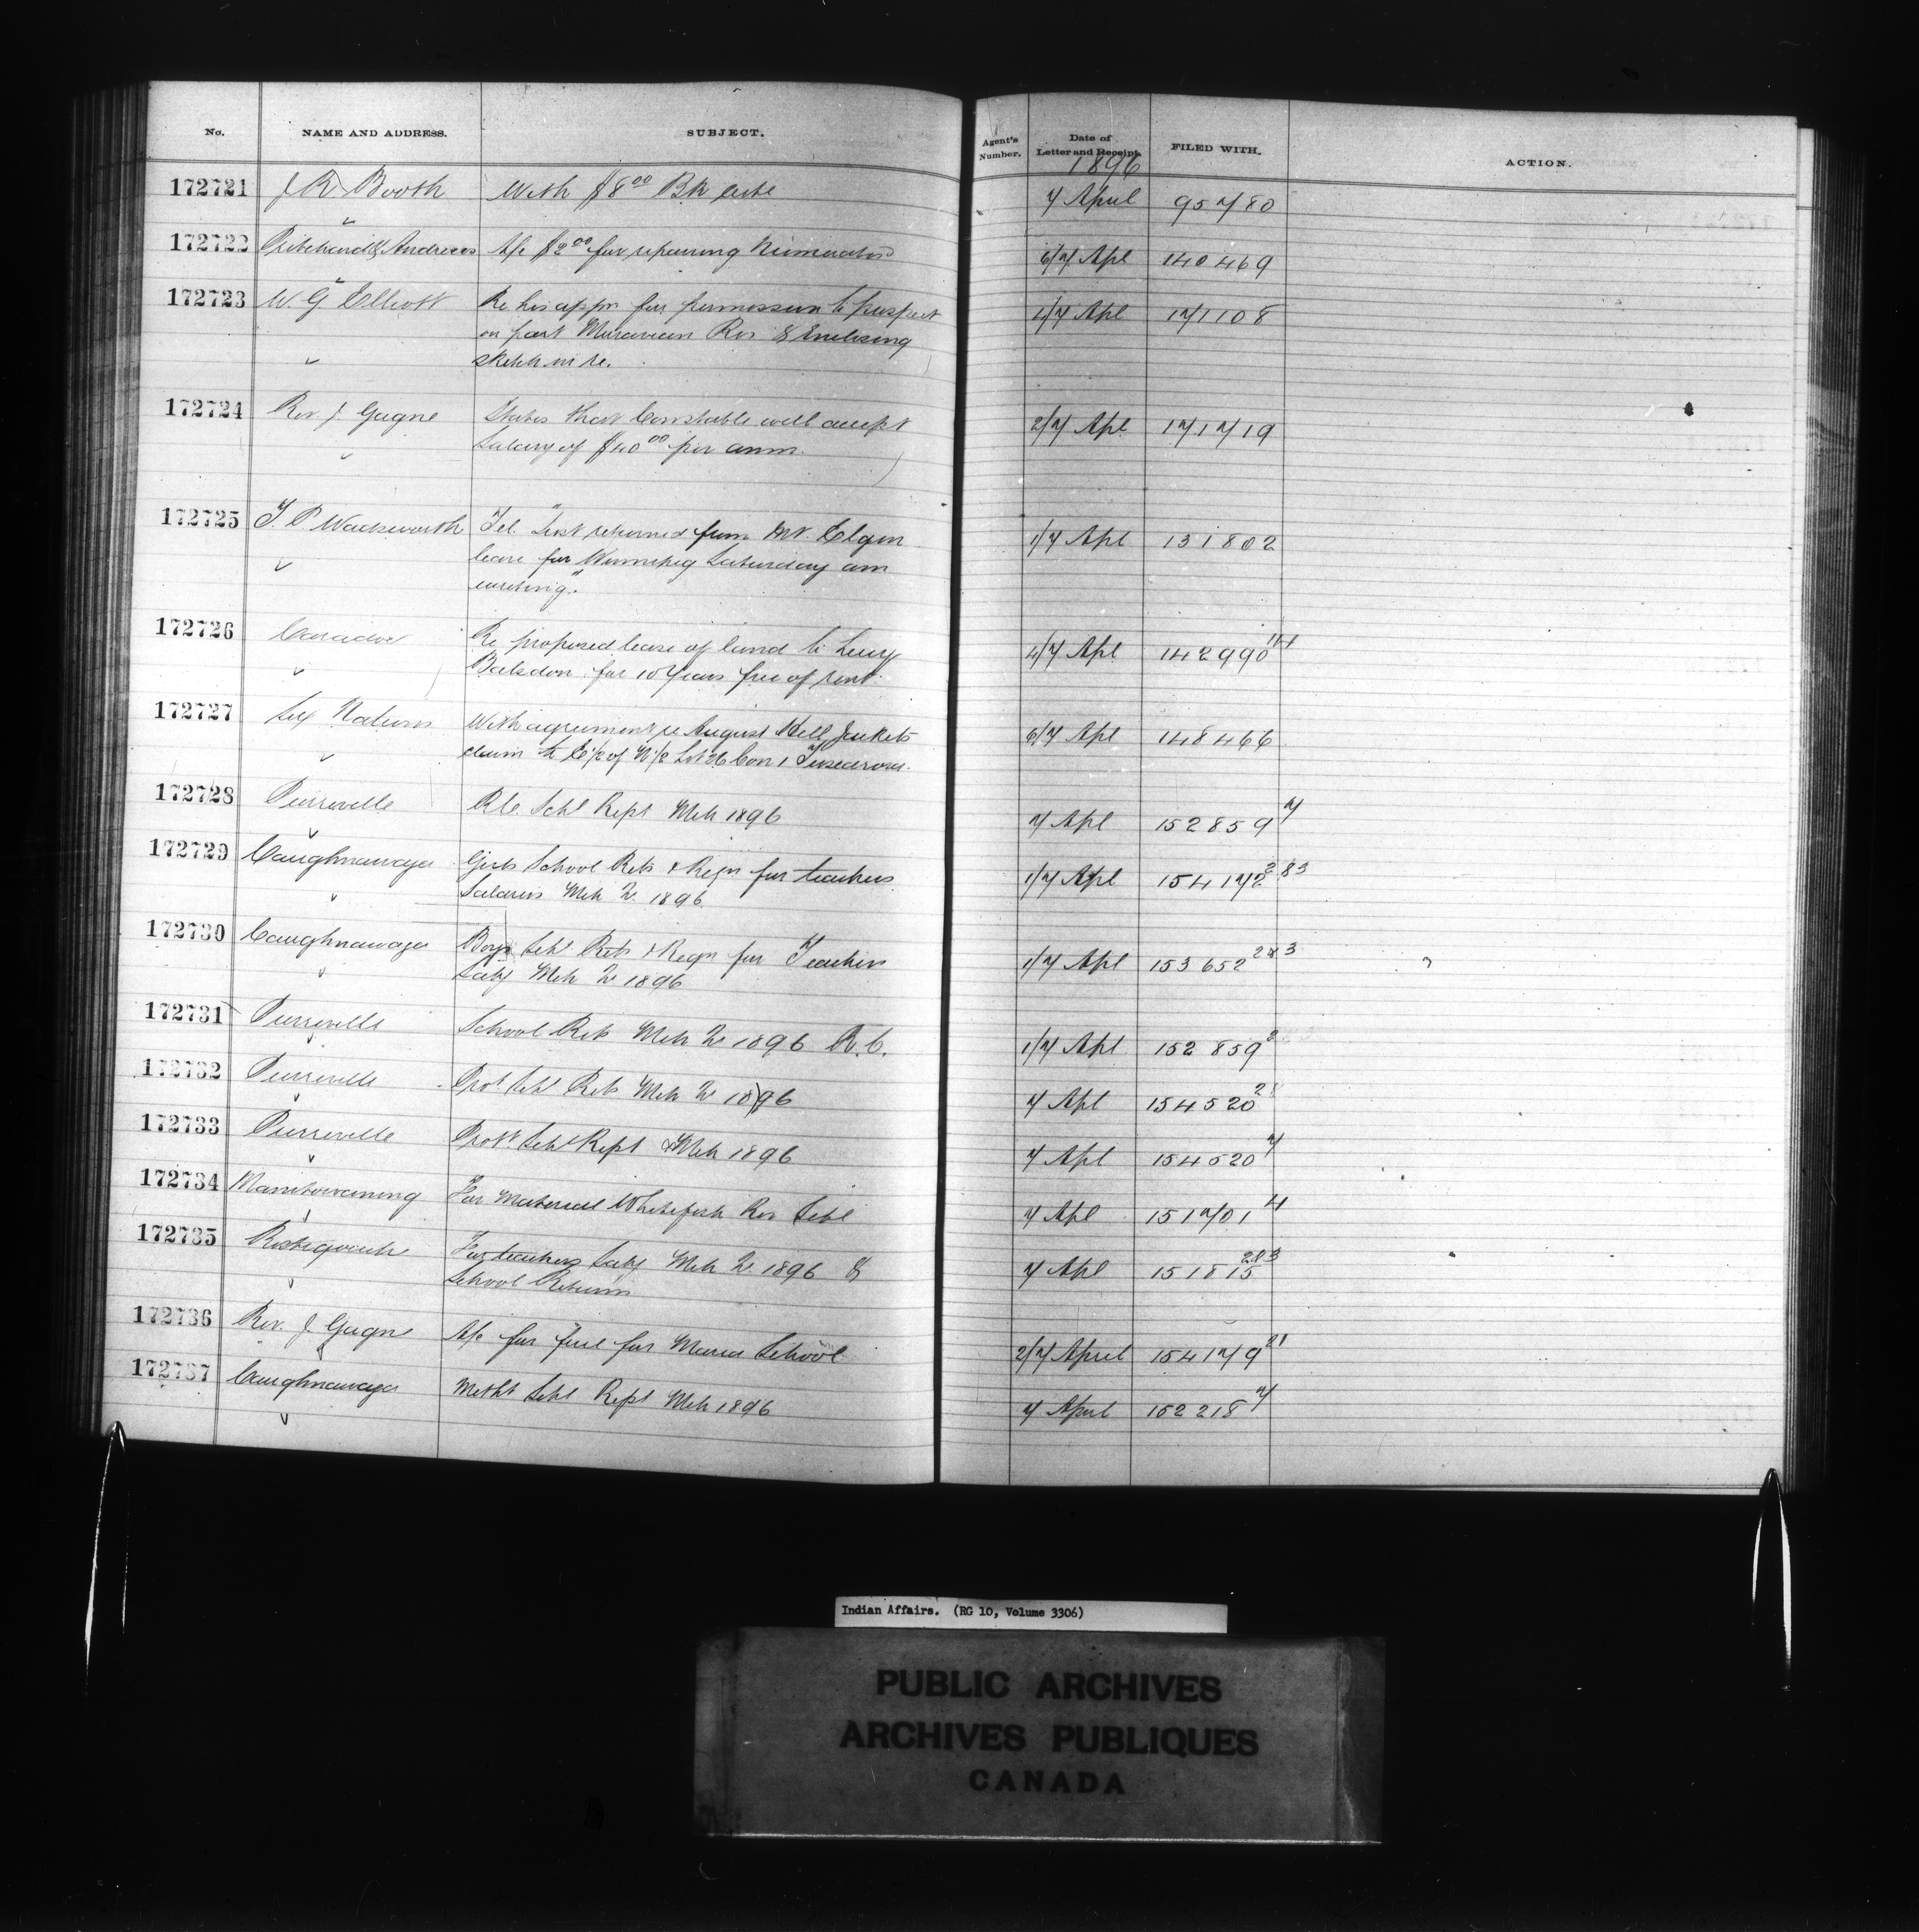 No. NAME AND ADDRESS. SUBJECT. Agent's Number. Date of Letter and Receipt. FILED WITH. ACTION.
1896
172721 J R Booth With $8.00 Bk 7 April 95780
172722 Pritchard & Andrews A/c $2.00 for repairing 6/7 Apl 140469
172723 W. G Elliott Re his appn for permission to prospect 4/7 Apl 171108
on part Moravian Res & Enclosing
sketch in re.
172724 Rev. J. Gagne States that Constable will accept 2/7 Apl 171719
Salary of $40.00 per annm.
172725 T. P Wadsworth Tel. "Just returned from Mt. Elgin 1/7 Apl 131802
leave for Winnipeg Saturday am
writing."
172726 Caradoc Re proposed lease of land to Levy 4/7 Apl 142990 114
for 10 Years free of rent.
172727 Six Nations With agreement re August Hill Jackets 6/7 Apl 148466
claim to E½ of N½ Lot 26 Con 1 Tuscarora.
172728 Pierreville R.C. Schl Rept Mch 1896 7 Apl 152859 7
172729 Caughnawaga Girls School Rets & Reqn for teachers 1/7 Apl 154172 2&3
Salaries Mch Qr 1896
172730 Caughnawaga Boys Schl Rets & Reqn for Teachers 1/7 Apl 153652 2&3
Saly Mch Qr 1896
172731 Pierreville School Rets Mch Qr 1896 R.C. 1/7 Apl 152859 2
172732 Pierreville Prot. Schl Rets Mch Qr 1896 7 Apl 154520 2
172733 Pierreville Prot. Schl Rept Mch 1896 7 Apl 154520 7
172734 Manitowaning For Material Whitefish Res Schl 7 Apl 151701 4
172735 Restigouche For teachers Saly Mch Qr 1896 & 7 Apl 151815 2&3
School Returns
172736 Rev. J. Gagne A/c for fuel for Maria School 2/7 April 154179 21
172737 Caughnawaga Metht Schl Rept Mch 1896 7 April 152218 7
Indian Affairs. (RG 10, Volume 3306)
PUBLIC ARCHIVES
ARCHIVES PUBLIQUES
CANADA